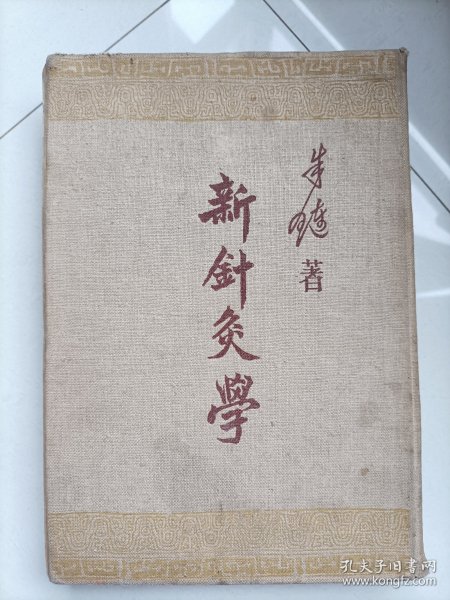 朱璉
著
新針灸學
孔夫子旧书网
www.kongfz.com